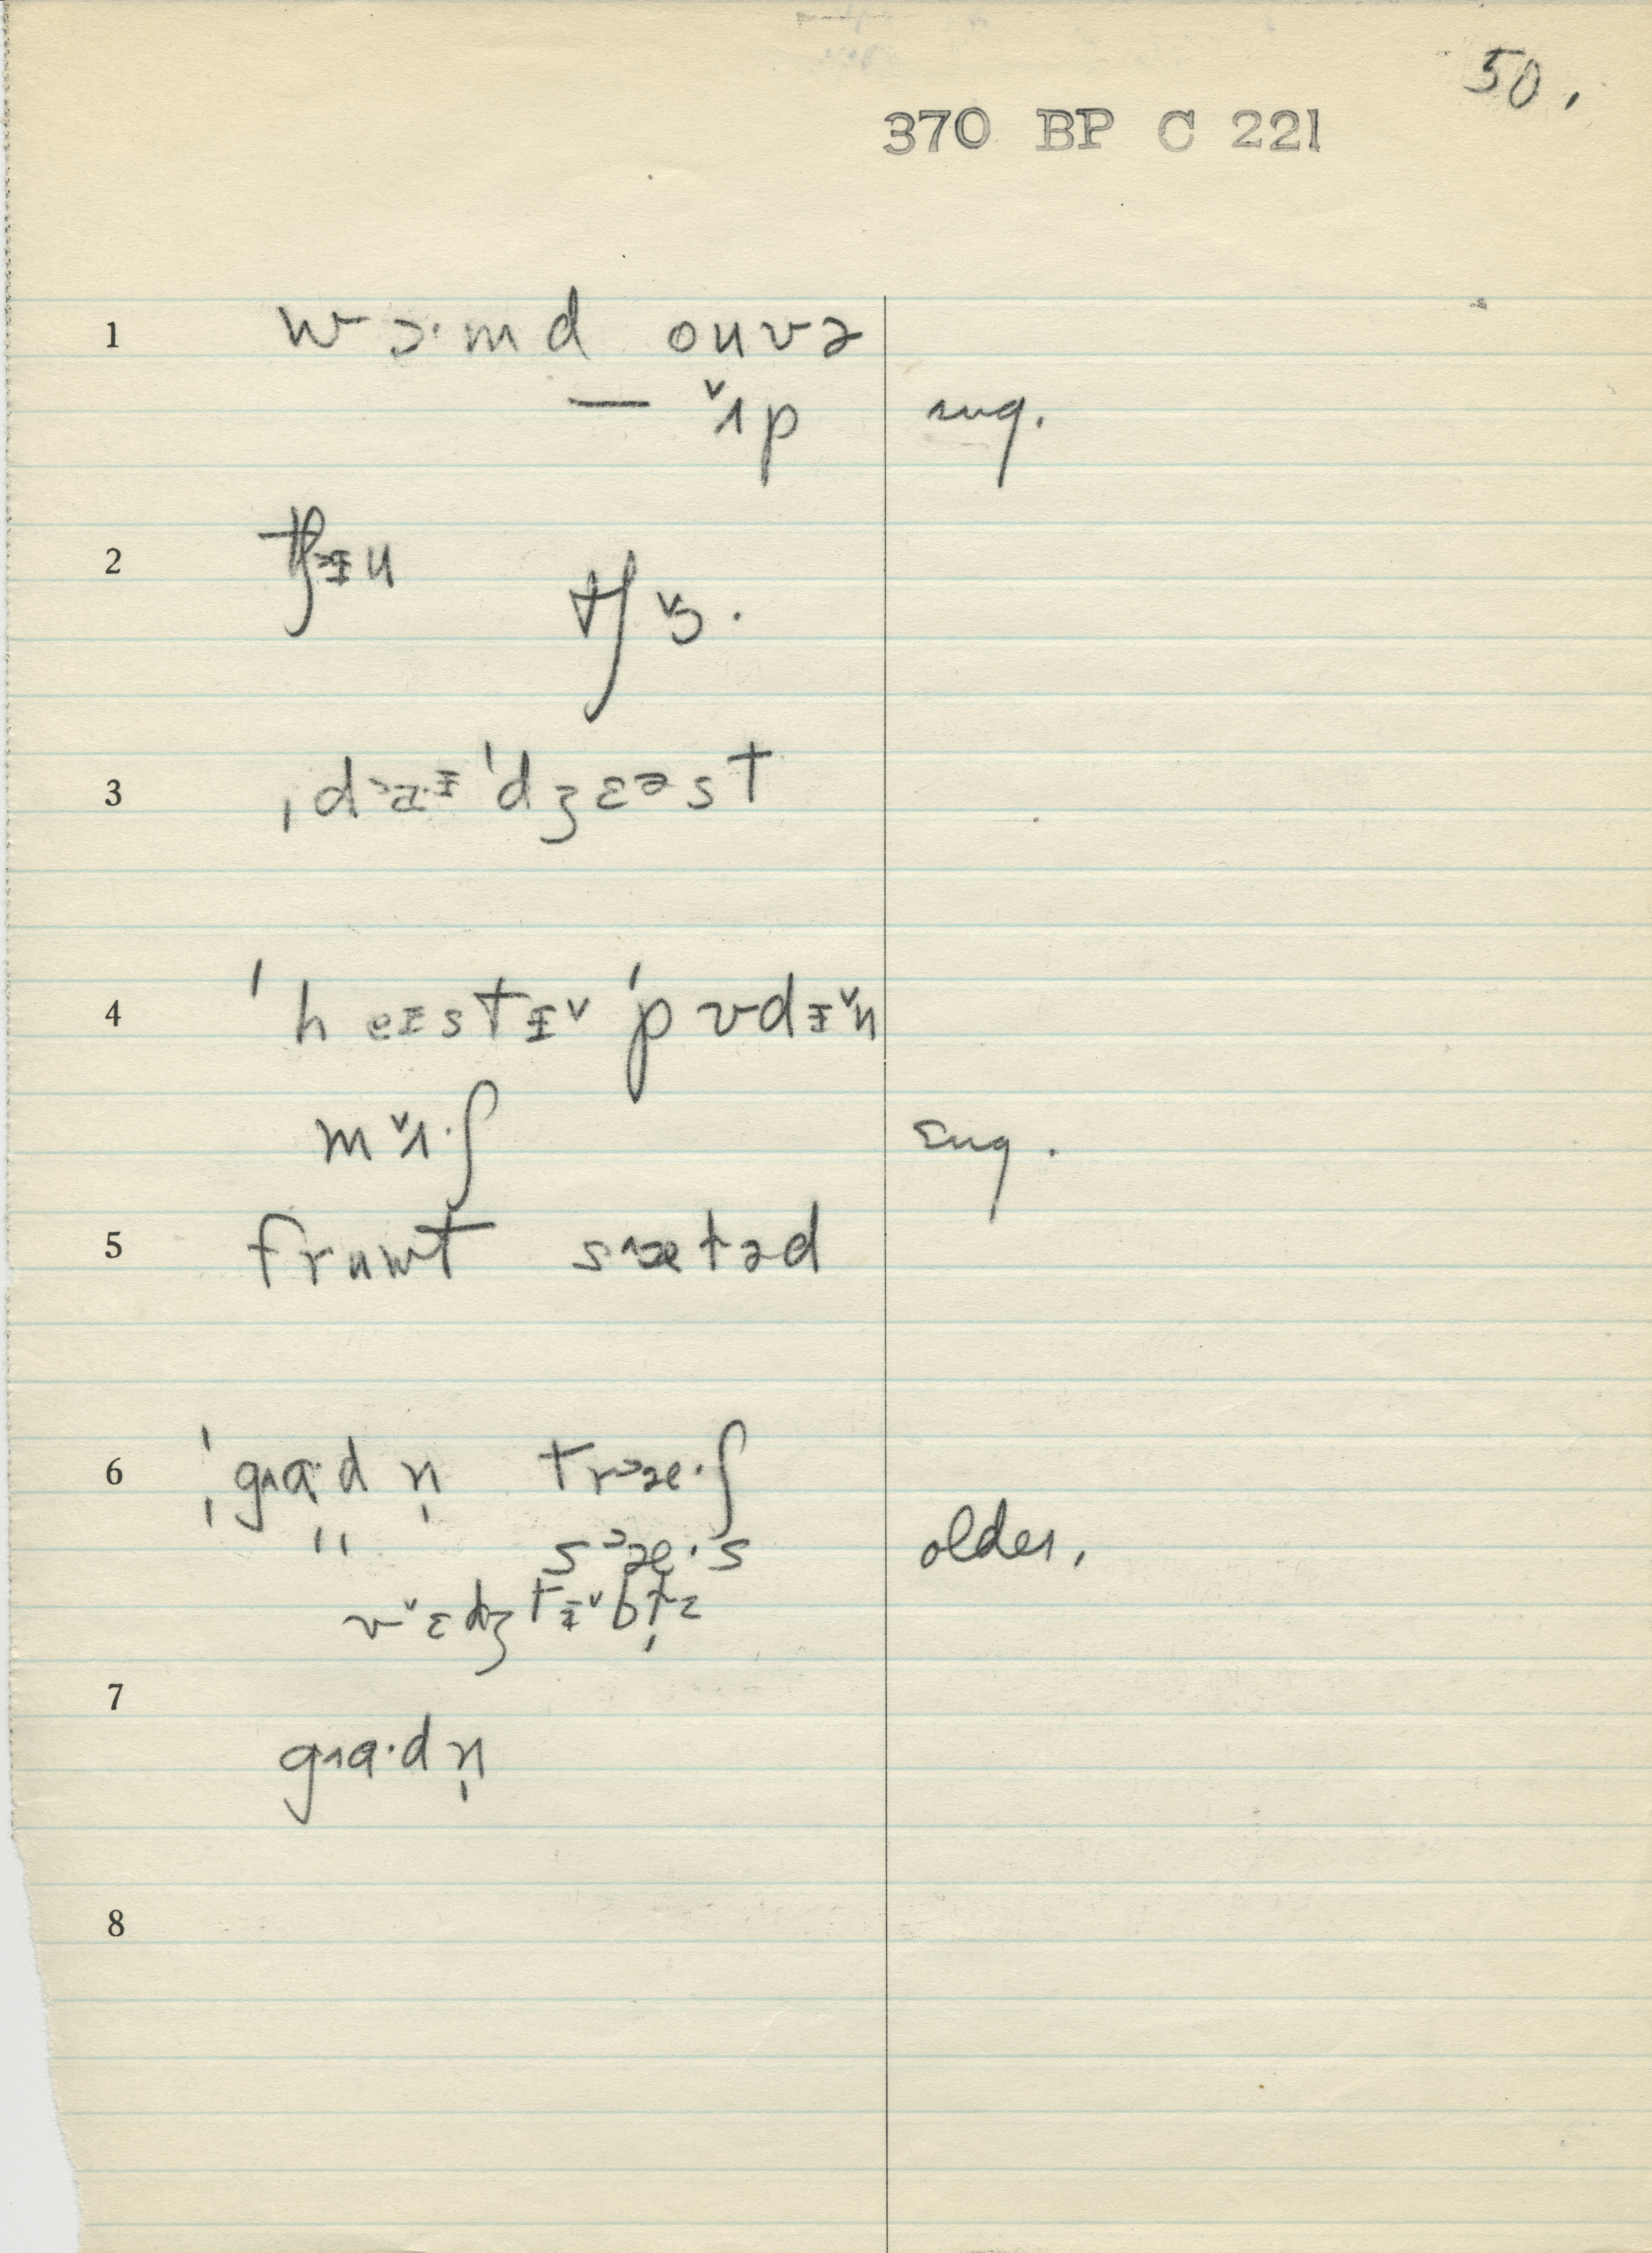 50.
370 BP C 221
1 wɔ·md ouvə
— ˇʌp sug.
2 tʃᵻu
tʃˇɜ·
3 ˌdaᵻˈdʒɛəst
4 ˈheɪstᵻˇ ˈpʊdᵻˇn
mˇʌ·ʃ sug.
5 fruwt sætəd
6 gʌɑ·dn̩ træ·ʃ
" sæ·s older.
vˇɛdʒtᵻˇbɫz
7 gʌɑ·dn̩
8